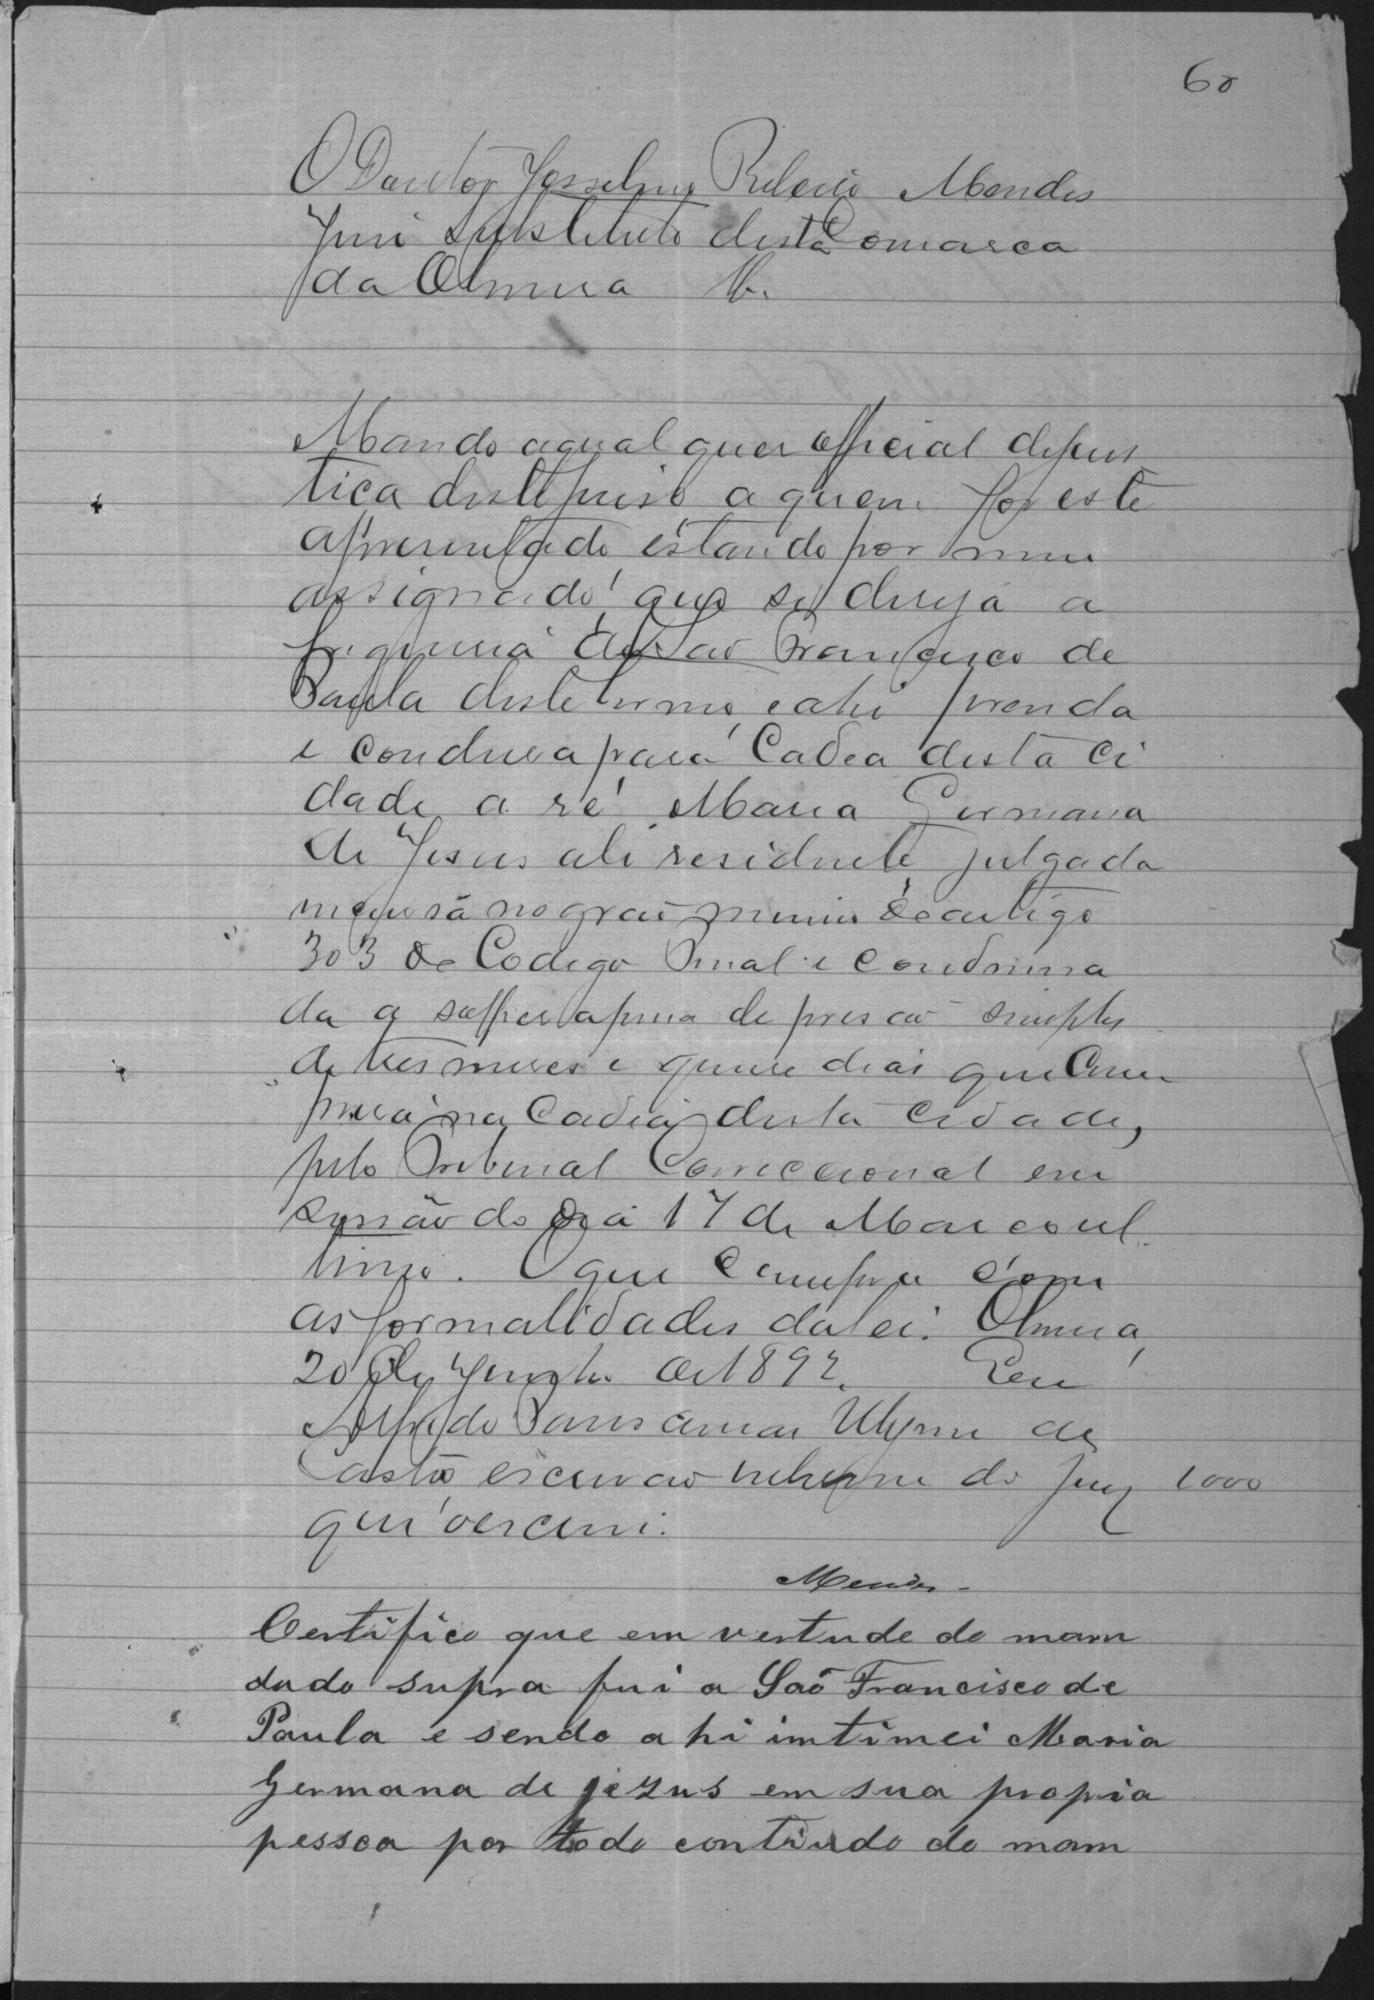 60
O Doutor Josselino Ribeiro Mendes
Juis substituto desta Comarca
da Oliveira &.
Mando aqual quer official dejus
tica deste juiso a quem for este
apresentado estando por mim
assignado, que se dirija a
freguesia de São Francisco de
Paula deste termo, e ahi prenda
e condusa para Cadea desta ci
dade a ré Maria Germana
de Jesus ali residente julgada
incursa no grao minimo do artigo
303 do Codigo Penal e condemna
da a soffrer a pena de prisão simples
de tres meses e quinse dias que Cum
prirá na Cadeia desta Cidade,
pelo Tribunal Correccional em
sessão do dia 17 de Marco ul
timo. O que cumpra com
as formalidades da lei. Oliveira,
20 de Junho de 1892. Eu
Alfredo de
Castro escrivão do Jury 1000
que o escrevi.
Mendes
Certifico que em vertude do mam
dado supra fui a São Francisco de
Paula e sendo a hi imtimei Maria
Germana de jezus em sua propria
pessoa por todo contiudo do mam